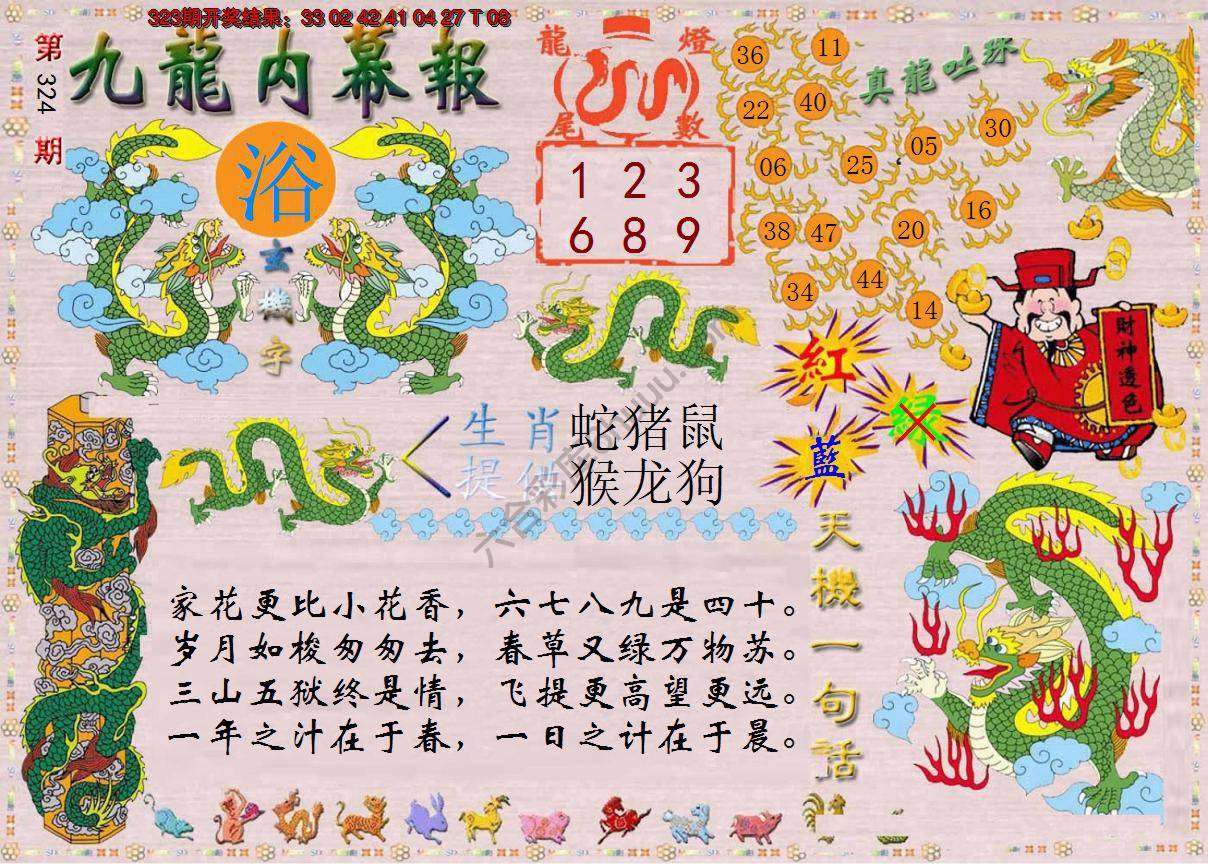 323期开奖结果：33 02 42 41 04 27 T 08
第324期
九龍内幕報
浴
玄機字
龍燈尾數
1 2 3
6 8 9
真龍吐珠
36
11
22
40
05
30
06
25
38
47
20
16
34
44
14
財神透色
紅
绿
藍
生肖
提供
蛇猪鼠
猴龙狗
天機一句話
家花更比小花香，六七八九是四十。
岁月如梭匆匆去，春草又绿万物苏。
三山五狱终是情，飞提更高望更远。
一年之汁在于春，一日之计在于晨。